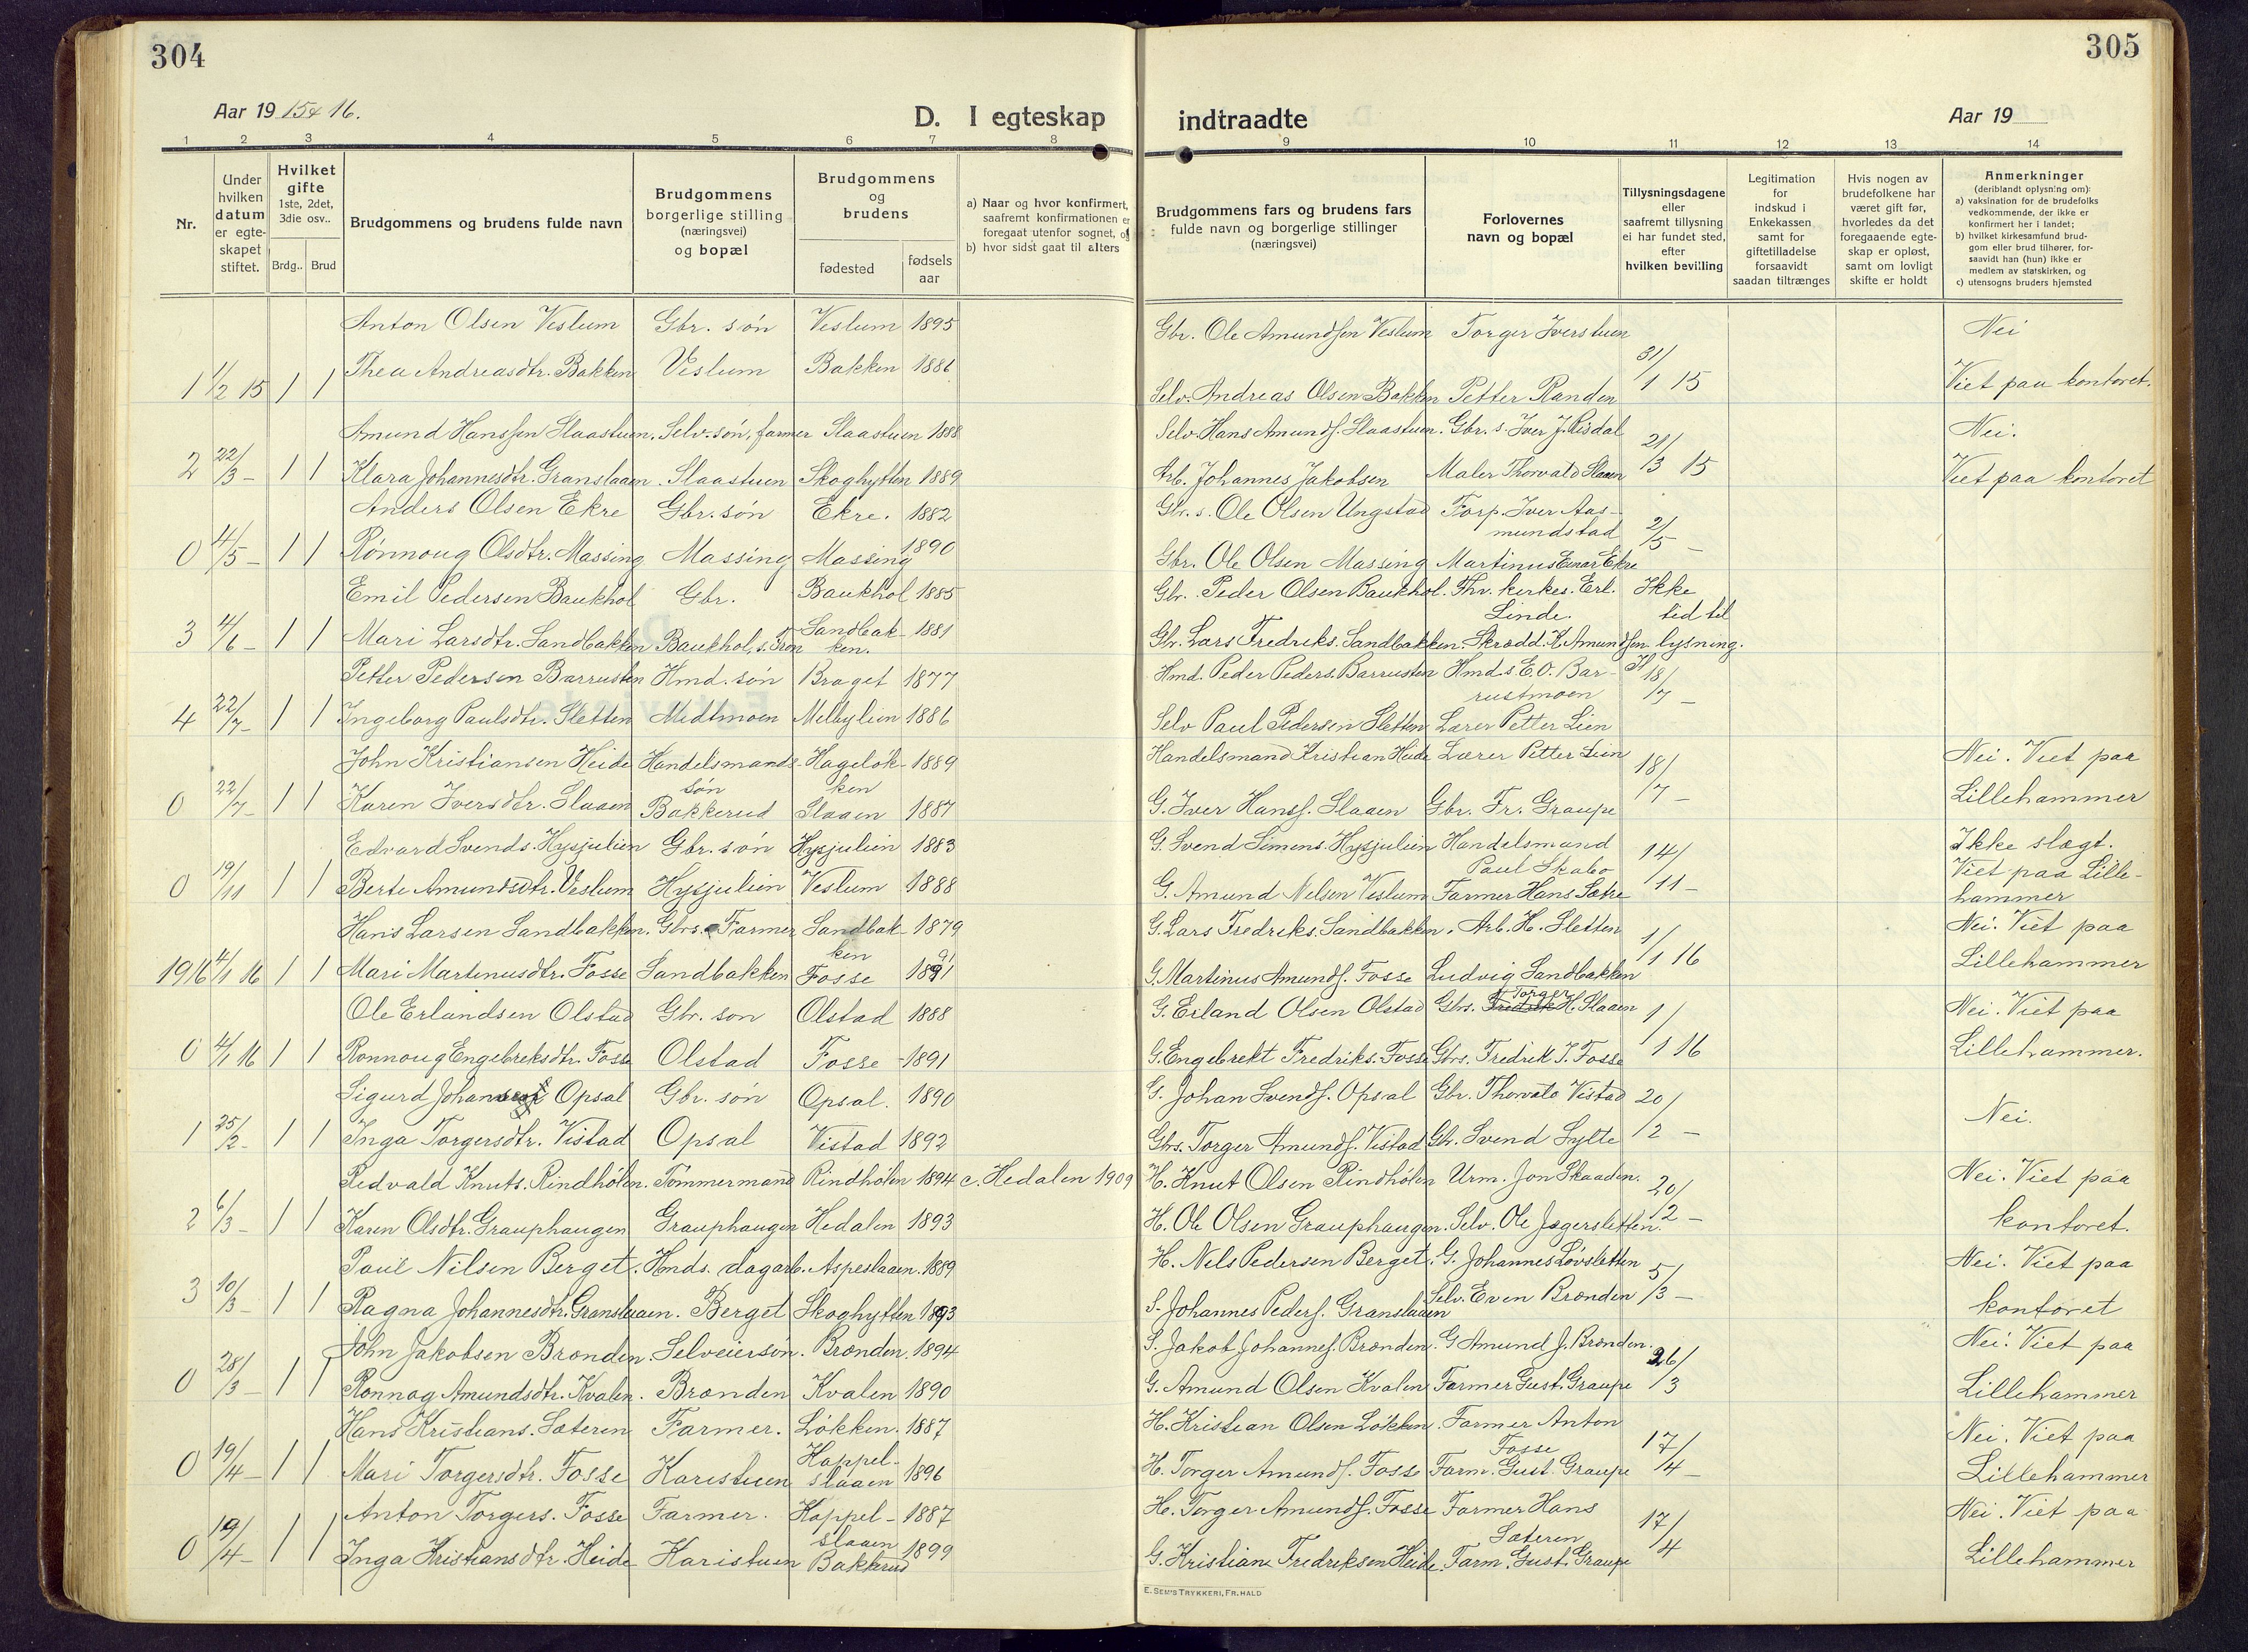 304
305
Aar 19 15 & 16.
D. I egteskap
indtraadte
Aar 19
1 2 3 4 5 6 7 8 9 10 11 12 13 14
Nr.
Under hvilken datum er egte-skapet stiftet.
Hvilket gifte 1ste, 2det, 3die osv..
Brdg.. Brud
Brudgommens og brudens fulde navn
Brudgommens borgerlige stilling (næringsvei) og bopæl
Brudgommens og brudens
fødested
fødsels aar
a) Naar og hvor konfirmert, saafremt konfirmationen er foregaat utenfor sognet, og
b) hvor sidst gaat til alters
Brudgommens fars og brudens fars fulde navn og borgerlige stillinger (næringsvei)
Forlovernes navn og bopæl
Tillysningsdagene eller saafremt tillysning ei har fundet sted, efter hvilken bevilling
Legitimation for indskud i Enkekassen samt for giftetilladelse forsaavidt saadan tiltrænges
Hvis nogen av brudefolkene har været gift før, hvorledes da det foregaaende egte-skap er opløst, samt om lovligt skifte er holdt
Anmerkninger (deriblandt oplysning om): a) vaksination for de brudefolks vedkommende, der ikke er konfirmert her i landet; b) hvilket kirkesamfund brud-gom eller brud tilhører, for-saavidt han (hun) ikke er medlem av statskirken, og c) utensogns bruders hjemsted
Anton Olsen Veslum Gbr. søn Veslum 1895 Gbr. Ole Amundsen Veslum Torger Iverstuen Nei
1 1/2 15 1 1 Thea Andreasdtr. Bakken Veslum Bakken 1886 Selv. Andreas Olsen Bakken Petter Randen 31/1 15 Viet paa kontoret.
Amund Hanssen Slaastuen. Selv. søn, farmer Slaastuen 1888 Selv. Hans Amunds. Slaastuen. Gbr. s. Iver J. Risdal Nei.
2 22/3 - 1 1 Klara Johannesdtr. Granslaaen. Slaastuen Skoghytten 1889 Arb. Johannes Jakobsen Maler Thorvald Slaaen 21/3 15 Viet paa kontoret
Anders Olsen Ekre Gbr. søn Ekre. 1882 Gbr. s. Ole Olsen Ungstad Forp. Iver Aas-
mundstad
0 4/5 - 1 1 Rønnoug Olsdtr. Massing Massing Massing 1890 Gbr. Ole Olsen Massing Martinus Einar Ekre 2/5 -
Emil Pedersen Baukhol Gbr. Baukhol 1885 Gbr. Peder Olsen Baukhol. Thv. kirkes. Erl. Ikke
Linde. tid til
3 4/6 - 1 1 Mari Larsdtr. Sandbakken Baukhol, s. Fron Sandbak-ken. 1881 Gbr. Lars Fredriks. Sandbakken. Skrædd. K. Amundsen lysning.
Petter Pedersen Barrusten Hmd. søn Braget 1877 Hmd. Peder Peders. Barrusten Hmd.s. E. O. Bar-
rustmoen 18/7 -
4 22/7 - 1 1 Ingeborg Paulsdtr. Sletten Midtmoen Melbylien 1886 Selv Paul Pedersen Sletten Lærer Petter Lien
John Kristiansen Heide Handelsmands-søn Hageløk-ken 1889 Handelsmand Kristian Heide Lærer Petter Lien Nei. Viet paa
0 22/7 - 1 1 Karen Iversdtr. Slaaen Bakkerud Slaaen 1887 G. Iver Hanss. Slaaen Gbr. Fr. Graupe 18/7 - Lillehammer
Edvard Svends. Hysjulien Gbr. søn Hysjulien 1883 G. Svend Simens. Hysjulien Handelsmand Ikke slægt.
Paul Skabo Viet paa Lille-
0 19/11 1 1 Berte Amundsdtr. Veslum Hysjulien Veslum 1888 G. Amund Nelsen Veslum Farmer Hans Sætre 14/11 - hammer
Hans Larsen Sandbakken. Gbrs. Farmer Sandbak-ken 1879 G. Lars Fredreks. Sandbakken. Arb. H. Sletten Nei. Viet paa
1916 4/1 16 1 1 Mari Martinusdtr. Fosse Sandbakken Fosse 1891 G. Martinus Amunds. Fosse Ludvig Sandbakken 1/1 16 Lillehammer
Ole Erlandsen Olstad Gbr. son Olstad 1888 G. Erland Olsen Olstad Gbrs. Torger H. Slaaen Nei. Viet paa
0 4/1 16 1 1 Ronnoug Engebreksdtr. Fosse Olstad Fosse 1891 G. Engebrekt Fredriks. Fosse Gbrs. Fredrik T. Fosse 1/1 16 Lillehammer.
Sigurd Johansen Opsal Gbr. søn Opsal. 1890 G. Johan Svends. Opsal Gbr. Thorvald Vistad
1 25/2 - 1 1 Inga Torgersdtr. Vistad Opsal Vistad 1892 Gbs. Torger Amunds. Vistad Gbr. Svend Sylte 20/2 - Nei.
Redvald Knuts. Rindhølen. Tømmermand Rindhølen 1894 c. Hedalen 1909 H. Knut Olsen Rindhølen Urm. Jon Skaaden. Nei. Viet paa
2 6/3 - 1 1 Karen Olsdtr. Grauphaugen Grauphaugen Hedalen 1893 H. Ole Olsen Grauphaugen. Selv. Ole Jægersletten. 20/2 - kontoret.
Paul Nilsen Berget. Hmds. dagarb. Aspeslaaen. 1889 H. Nels Pedersen Berget. G. Johannes Løvsletten Nei. Viet paa
3 10/3 - 1 1 Ragna Johannesdtr. Granslaaen. Berget Skoghytten 1893 S. Johannes Peders. Granslaaen Selv. Even Brænden 5/3 - kontoret
John Jakobsen Brænden. Selveiersøn. Brænden. 1894 S. Jakob Johannes. Brænden. G. Amund J. Brænden. Nei. Viet paa
0 28/3 - 1 1 Ronnog Amundsdtr. Kvalen. Brænden Kvalen 1890 G. Amund Olsen Kvalen Farmer Gust. Graupe 26/3 Lillehammer
Hans Kristians. Sæteren Farmer. Løkken. 1887 H. Kristian Olsen Løkken. Farmer Anton Nei. Viet paa
Fosse
0 19/4 - 1 1 Mari Torgersdtr. Fosse Karistuen Kappel-slaaen 1896 H. Torger Amunds. Fosse Farm. Gust. Graupe 17/4 - Lillehammer
Anton Torgers. Fosse Farmer. Kappel-slaaen 1887 H. Torger Amunds. Fosse Farmer Hans Nei. Viet paa
Sæteren
0 19/4 - 1 1 Inga Kristiansdtr. Heide Karistuen Bakkerud 1899 G. Kristian Fredreksen Heide. Farm. Gust. Graupe 17/4 Lillehammer
E. SEM'S TRYKKERI, FR.HALD